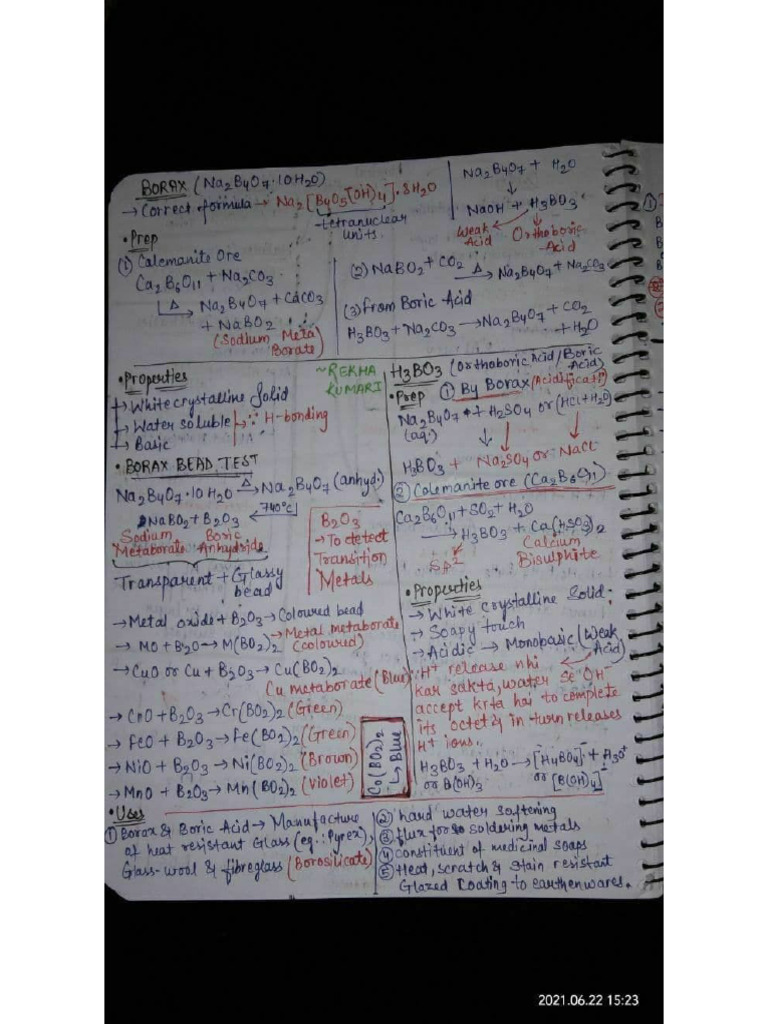 BORAX (Na2B4O7·10H2O)
→ Correct formula → Na2[B4O5(OH)4]·8H2O
tetranuclear
units.
Na2B4O7 + H2O
↓
NaOH + H3BO3
Weak
Acid
Orthoboric
Acid
• Prep
① Calemanite Ore
Ca2B6O11 + Na2CO3
Δ → Na2B4O7 + CaCO3
+ NaBO2
(Sodium Meta
Borate)
(2) NaBO2 + CO2 —Δ→ Na2B4O7 + Na2CO3
(3) From Boric Acid
H3BO3 + Na2CO3 → Na2B4O7 + CO2
+ H2O
• Properties
→ White crystalline Solid
→ Water soluble → ∵ H-bonding
→ Basic
~REKHA
KUMARI
• BORAX BEAD TEST
Na2B4O7·10H2O —Δ→ Na2B4O7 (anhyd.)
740°C
2NaBO2 + B2O3 ←
Sodium
Metaborate
Boric
Anhydride
Transparent + Glassy
bead
B2O3
→ To detect
Transition
Metals
→ Metal oxide + B2O3 → Coloured bead
→ MO + B2O → M(BO2)2 → Metal metaborate
(coloured)
→ CuO or Cu + B2O3 → Cu(BO2)2
Cu metaborate (Blue)
→ CrO + B2O3 → Cr(BO2)2 (Green)
→ FeO + B2O3 → Fe(BO2)2 (Green)
→ NiO + B2O3 → Ni(BO2)2 (Brown)
→ MnO + B2O3 → Mn(BO2)2 (Violet)
Co(BO2)2
↳ Blue
H3BO3 (Orthoboric Acid/Boric
Acid)
• Prep ① By Borax (Acidificatn)
Na2B4O7 + H2SO4 or (HCl+H2O)
(aq.)
H3BO3 + Na2SO4 or NaCl
② Colemanite ore (Ca2B6O11)
Ca2B6O11 + SO2 + H2O
→ H3BO3 + Ca(HSO3)2
SP2
Calcium
Bisulphite
• Properties
→ White crystalline Solid.
→ Soapy touch
→ Acidic → Monobasic (Weak
Acid)
H+ release nhi
kar sakta, water se OH-
accept krta hai to complete
its octet & in turn releases
H+ ions.
H3BO3 + H2O → [H4BO4]- + H3O+
or B(OH)3
or [B(OH)4]-
• Uses
① Borax & Boric Acid → Manufacture
of heat resistant Glass (eg.: Pyrex),
Glass-wool & fibreglass (Borosilicate)
② hard water softening
③ flux for soldering metals
④ constituent of medicinal soaps
⑤ Heat, scratch & stain resistant
Glazed Coating to earthenwares.
2021.06.22 15:23